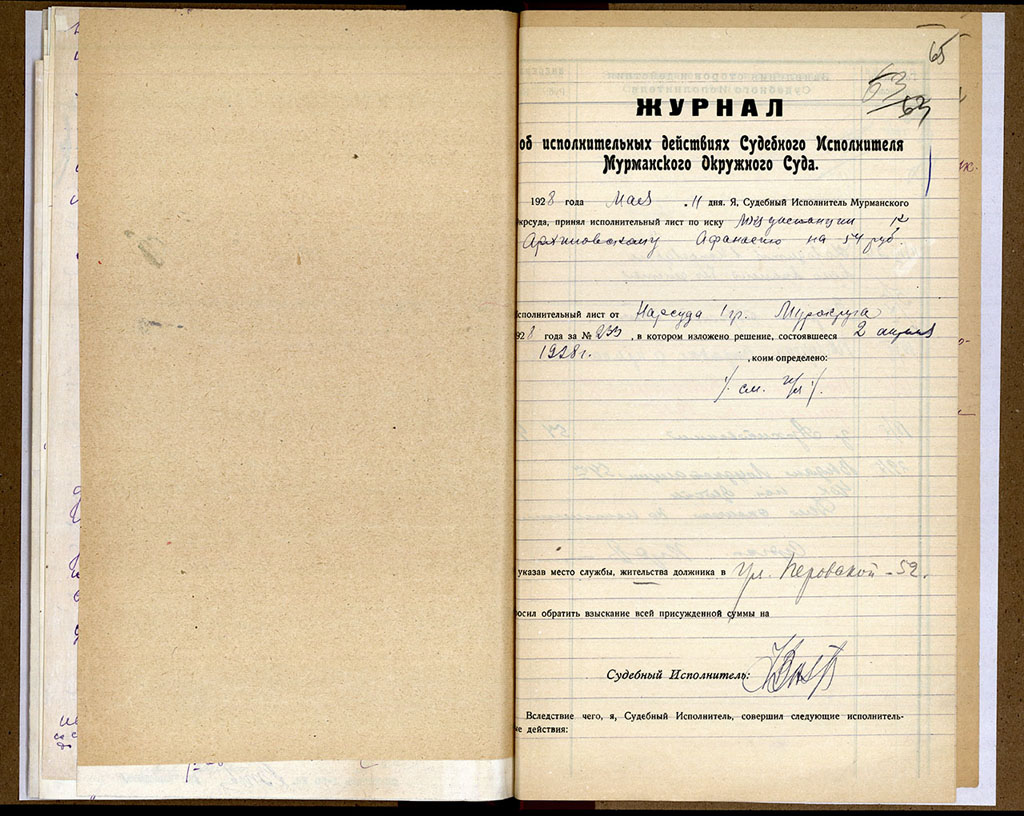 65
63
63
ЖУРНАЛ
об исполнительных действиях Судебного Исполнителя
Мурманского Окружного Суда.
1928 года Мая 11 дня. Я, Судебный Исполнитель Мурманского
крсуда, принял исполнительный лист по иску к
Архиповскому Афанасию на 54 руб.
сполнительный лист от Нарсуда 1 гр. Мурокруга
928 года за № 233, в котором изложено решение, состоявшееся 2 апреля
1928 г. , коим определено:
/. см. и/л /.
указав место службы, жительства должника в Ул. Перовской - 52.
осил обратить взыскание всей присужденной суммы на
Судебный Исполнитель:
Вследствие чего, я, Судебный Исполнитель, совершил следующие исполнитель-
е действия: